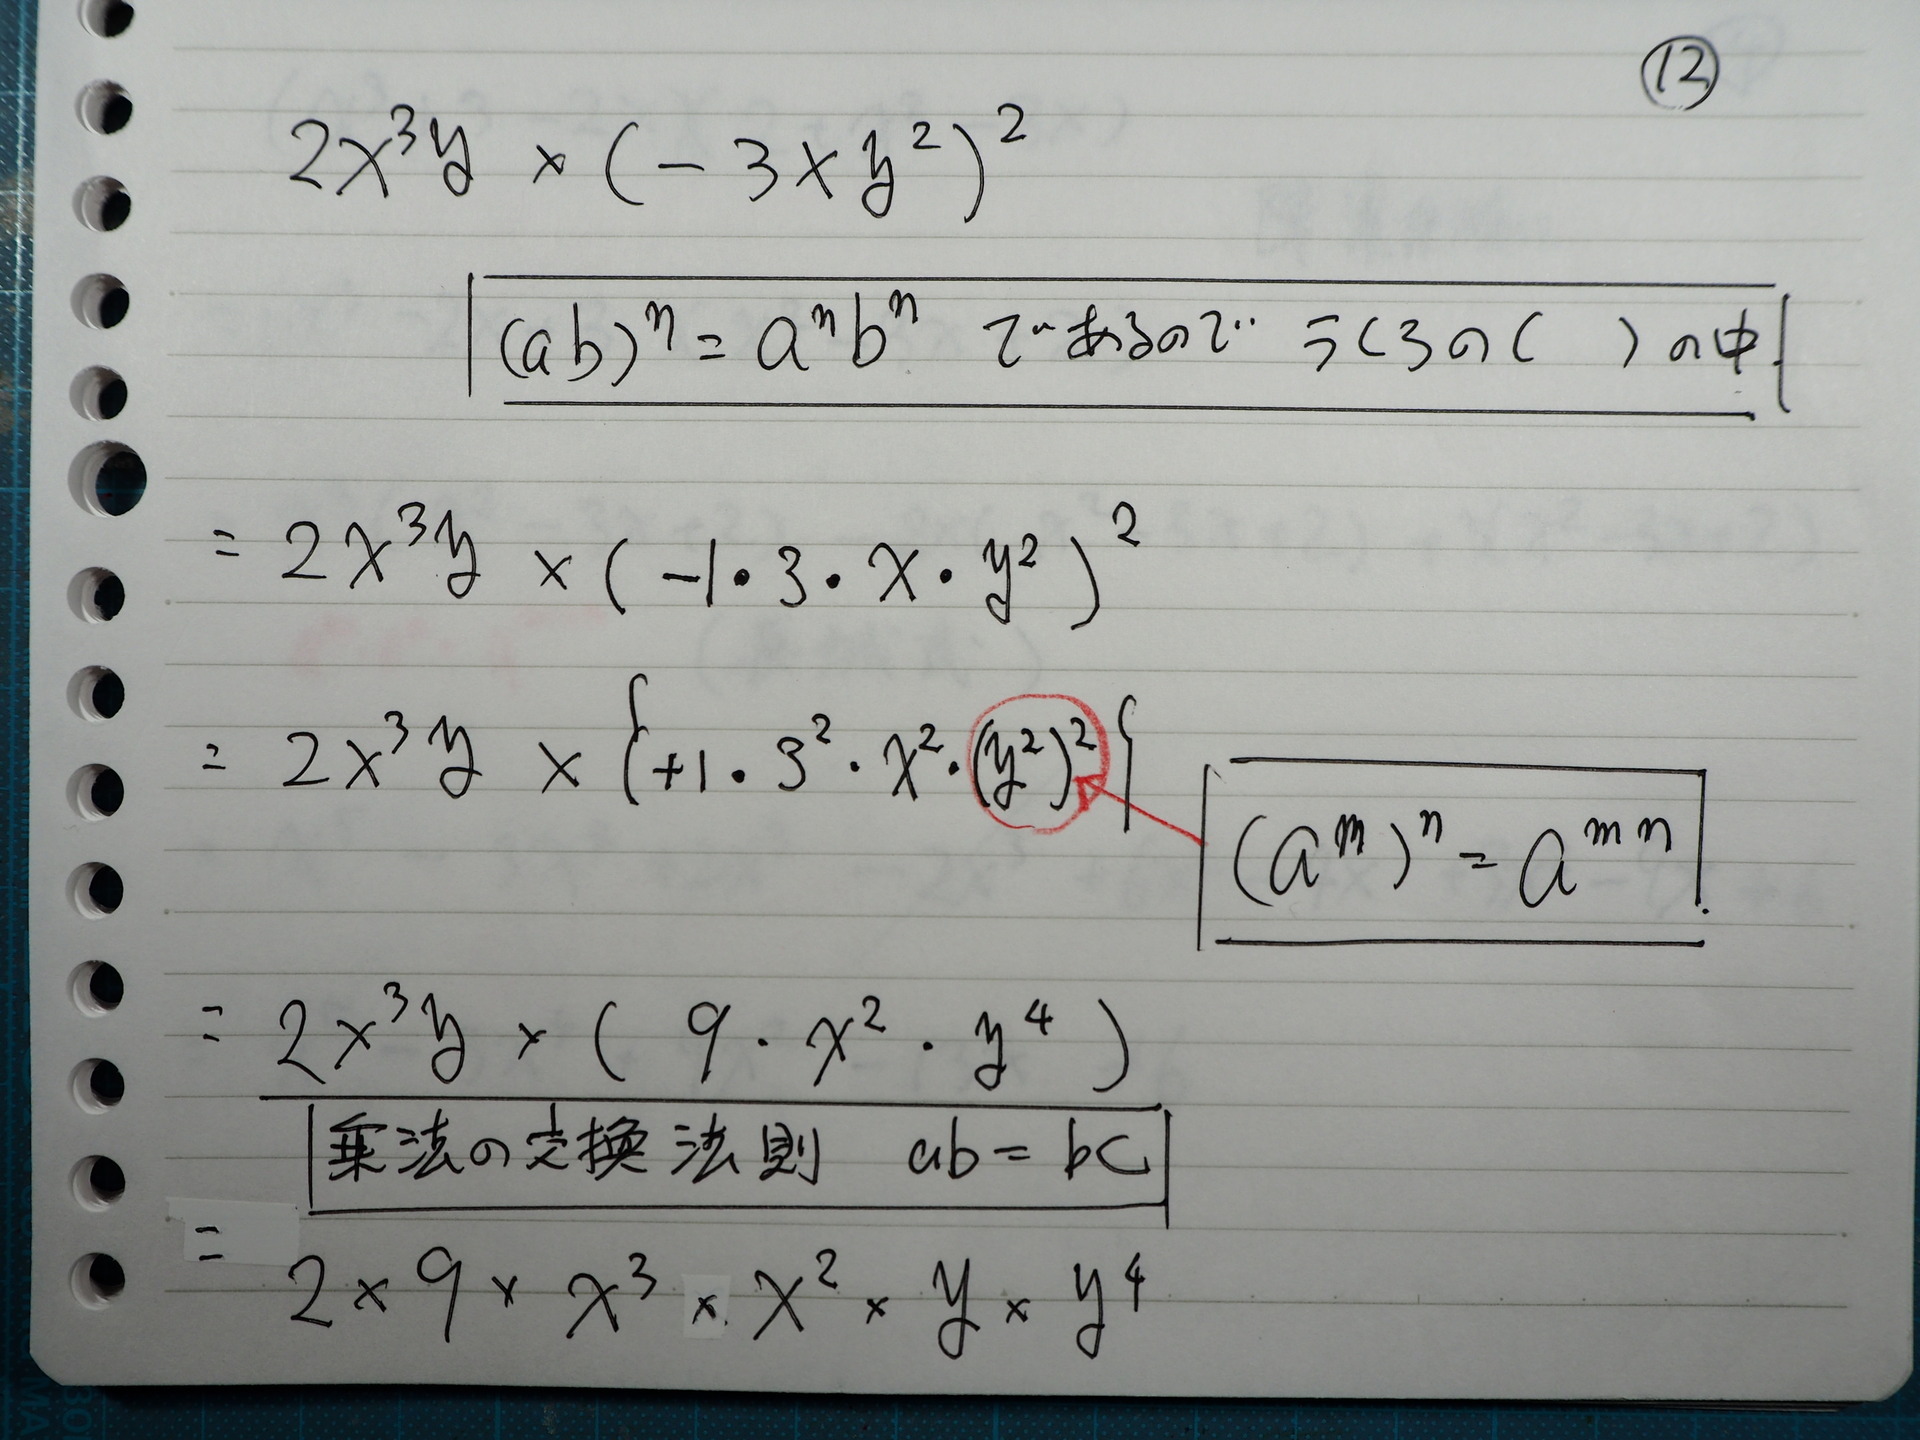 ⑫
2x³y × (-3xy²)²
(ab)ⁿ = aⁿbⁿ であるので うしろの( )の中
= 2x³y × (-1・3・x・y²)²
= 2x³y × {+1・3²・x²・(y²)²}
(aᵐ)ⁿ = aᵐⁿ
= 2x³y × (9・x²・y⁴)
乗法の交換法則 ab = bc
= 2 × 9 × x³ × x² × y × y⁴